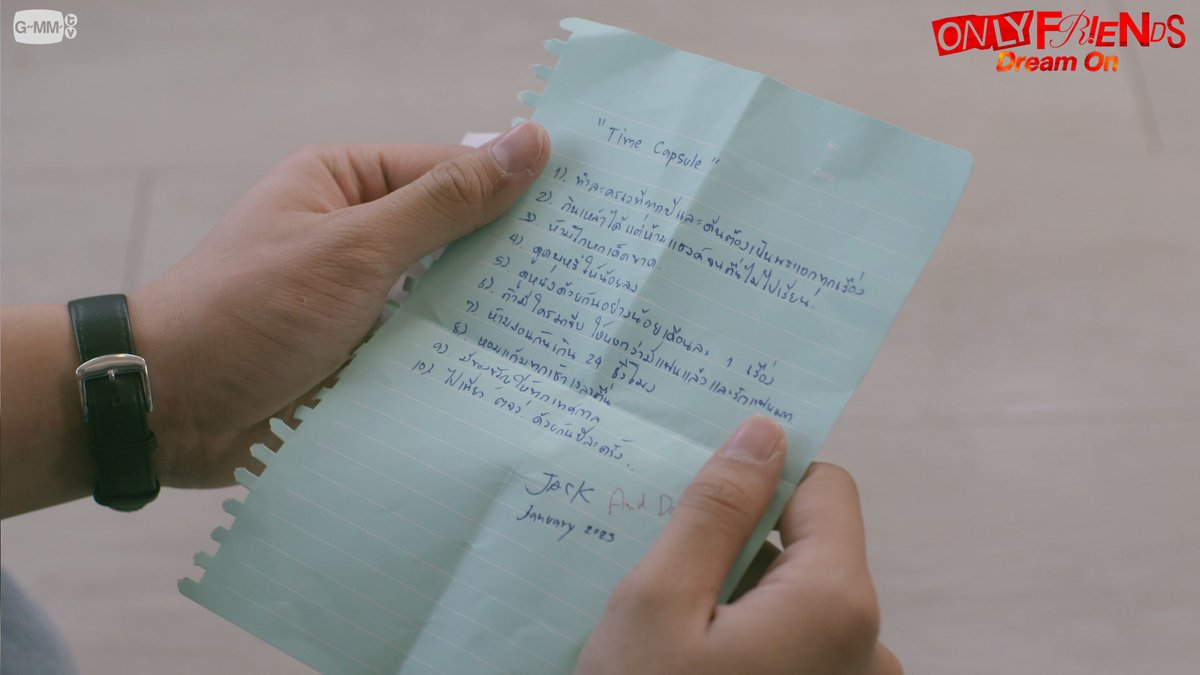 GMMTV
ONLY FRIENDS
Dream On
No
Date
"Time Capsule"
1). ทำละครเวทีทุกปีและต้นต้องเป็นพระเอกทุกเรื่อง
2). กินเหล้าได้แต่ห้ามแฮงค์จนตื่นไม่ไปเรียน.
3) ห้ามโกหกเด็ดขาด.
4). ดูดบุหรี่ให้น้อยลง
5) ดูหนังด้วยกันอย่างน้อยเดือนละ 1 เรื่อง
6). ถ้ามีใครมาจีบ ให้บอกว่ามีแฟนแล้วและรักแฟนมาก
7) ห้ามงอนกันเกิน 24 ชั่วโมง
8). หอมแก้มทุกเช้าเวลาตื่น
9). มีของขวัญให้ทุกเทศกาล
10) ไปเที่ยว ตจว. ด้วยกันปีละครั้ง..
Jack And
January 2023